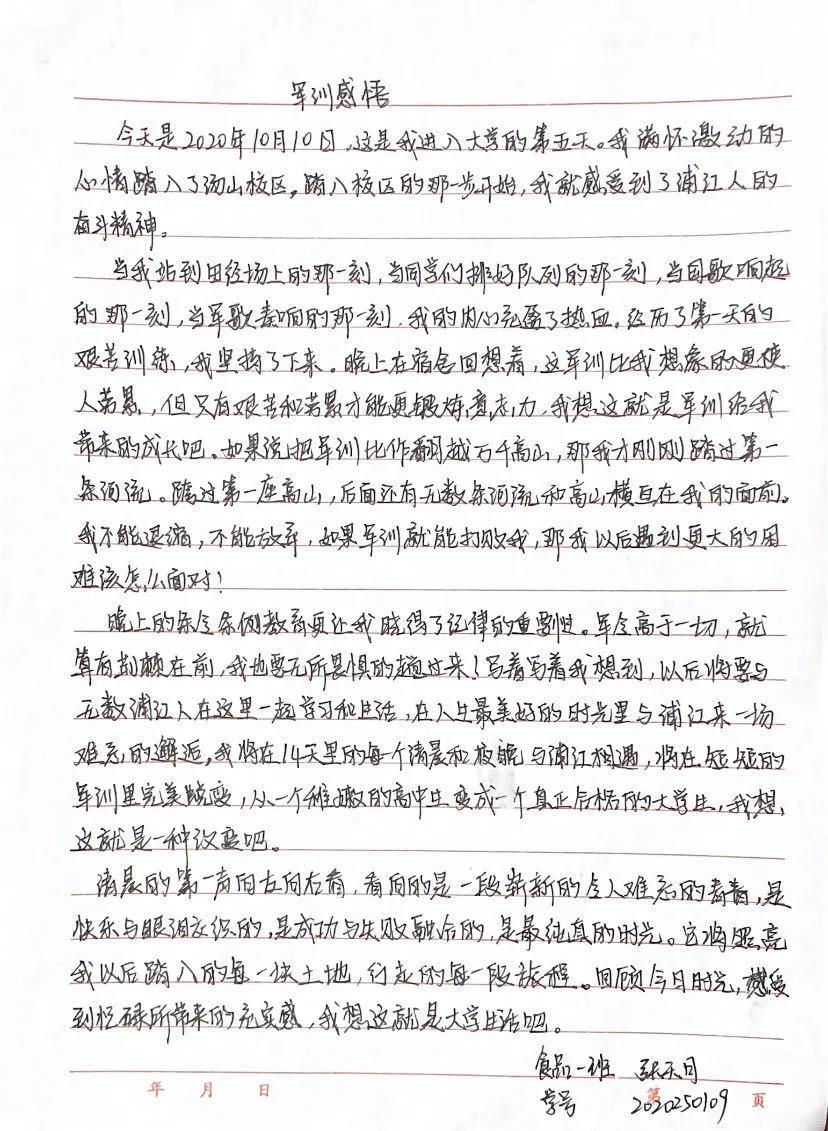 军训感悟
今天是2020年10月10日,这是我进入大学的第五天。我满怀激动的
心情踏入了汤山校区。踏入校区的那一步开始,我就感受到了浦江人的
奋斗精神。
当我站到田径场上的那一刻,当同学们排好队列的那一刻,当国歌响起
的那一刻,当军歌奏响的那一刻,我的内心充盈了热血。经历了第一天的
艰苦训练,我坚持了下来。晚上在宿舍回想着,这军训比我想象的更使
人劳累,但只有艰苦和劳累才能更锻炼意志力,我想这就是军训给我
带来的成长吧。如果说把军训比作翻越万千高山,那我才刚刚踏过第一
条河流。跨过第一座高山,后面还有无数条河流和高山横亘在我的面前。
我不能退缩,不能放弃,如果军训就能打败我,那我以后遇到更大的困
难该怎么面对!
晚上的条令条例教育更让我晓得了纪律的重要性。军令高于一切,就
算有刺头在前,我也要无所畏惧的趟过来!写着写着我想到,以后将要与
无数浦江人在这里一起学习和生活,在人生最美好的时光里与浦江来一场
难忘的邂逅,我将在14天里的每个清晨和夜晚与浦江相遇,将在短短的
军训里完美蜕变,从一个稚嫩的高中生变成一个真正合格的大学生,我想,
这就是一种改变吧。
清晨的第一声向左向右看,看向的是一段崭新的令人难忘的青春,是
快乐与眼泪交织的,是成功与失败融合的,是最纯真的时光。它将照亮
我以后踏入的每一块土地,行走的每一段旅程。回顾今日时光,感受
到忙碌所带来的充实感,我想这就是大学生活吧。
食品一班 张天同
学号 2020250109
年 月 日 第 页